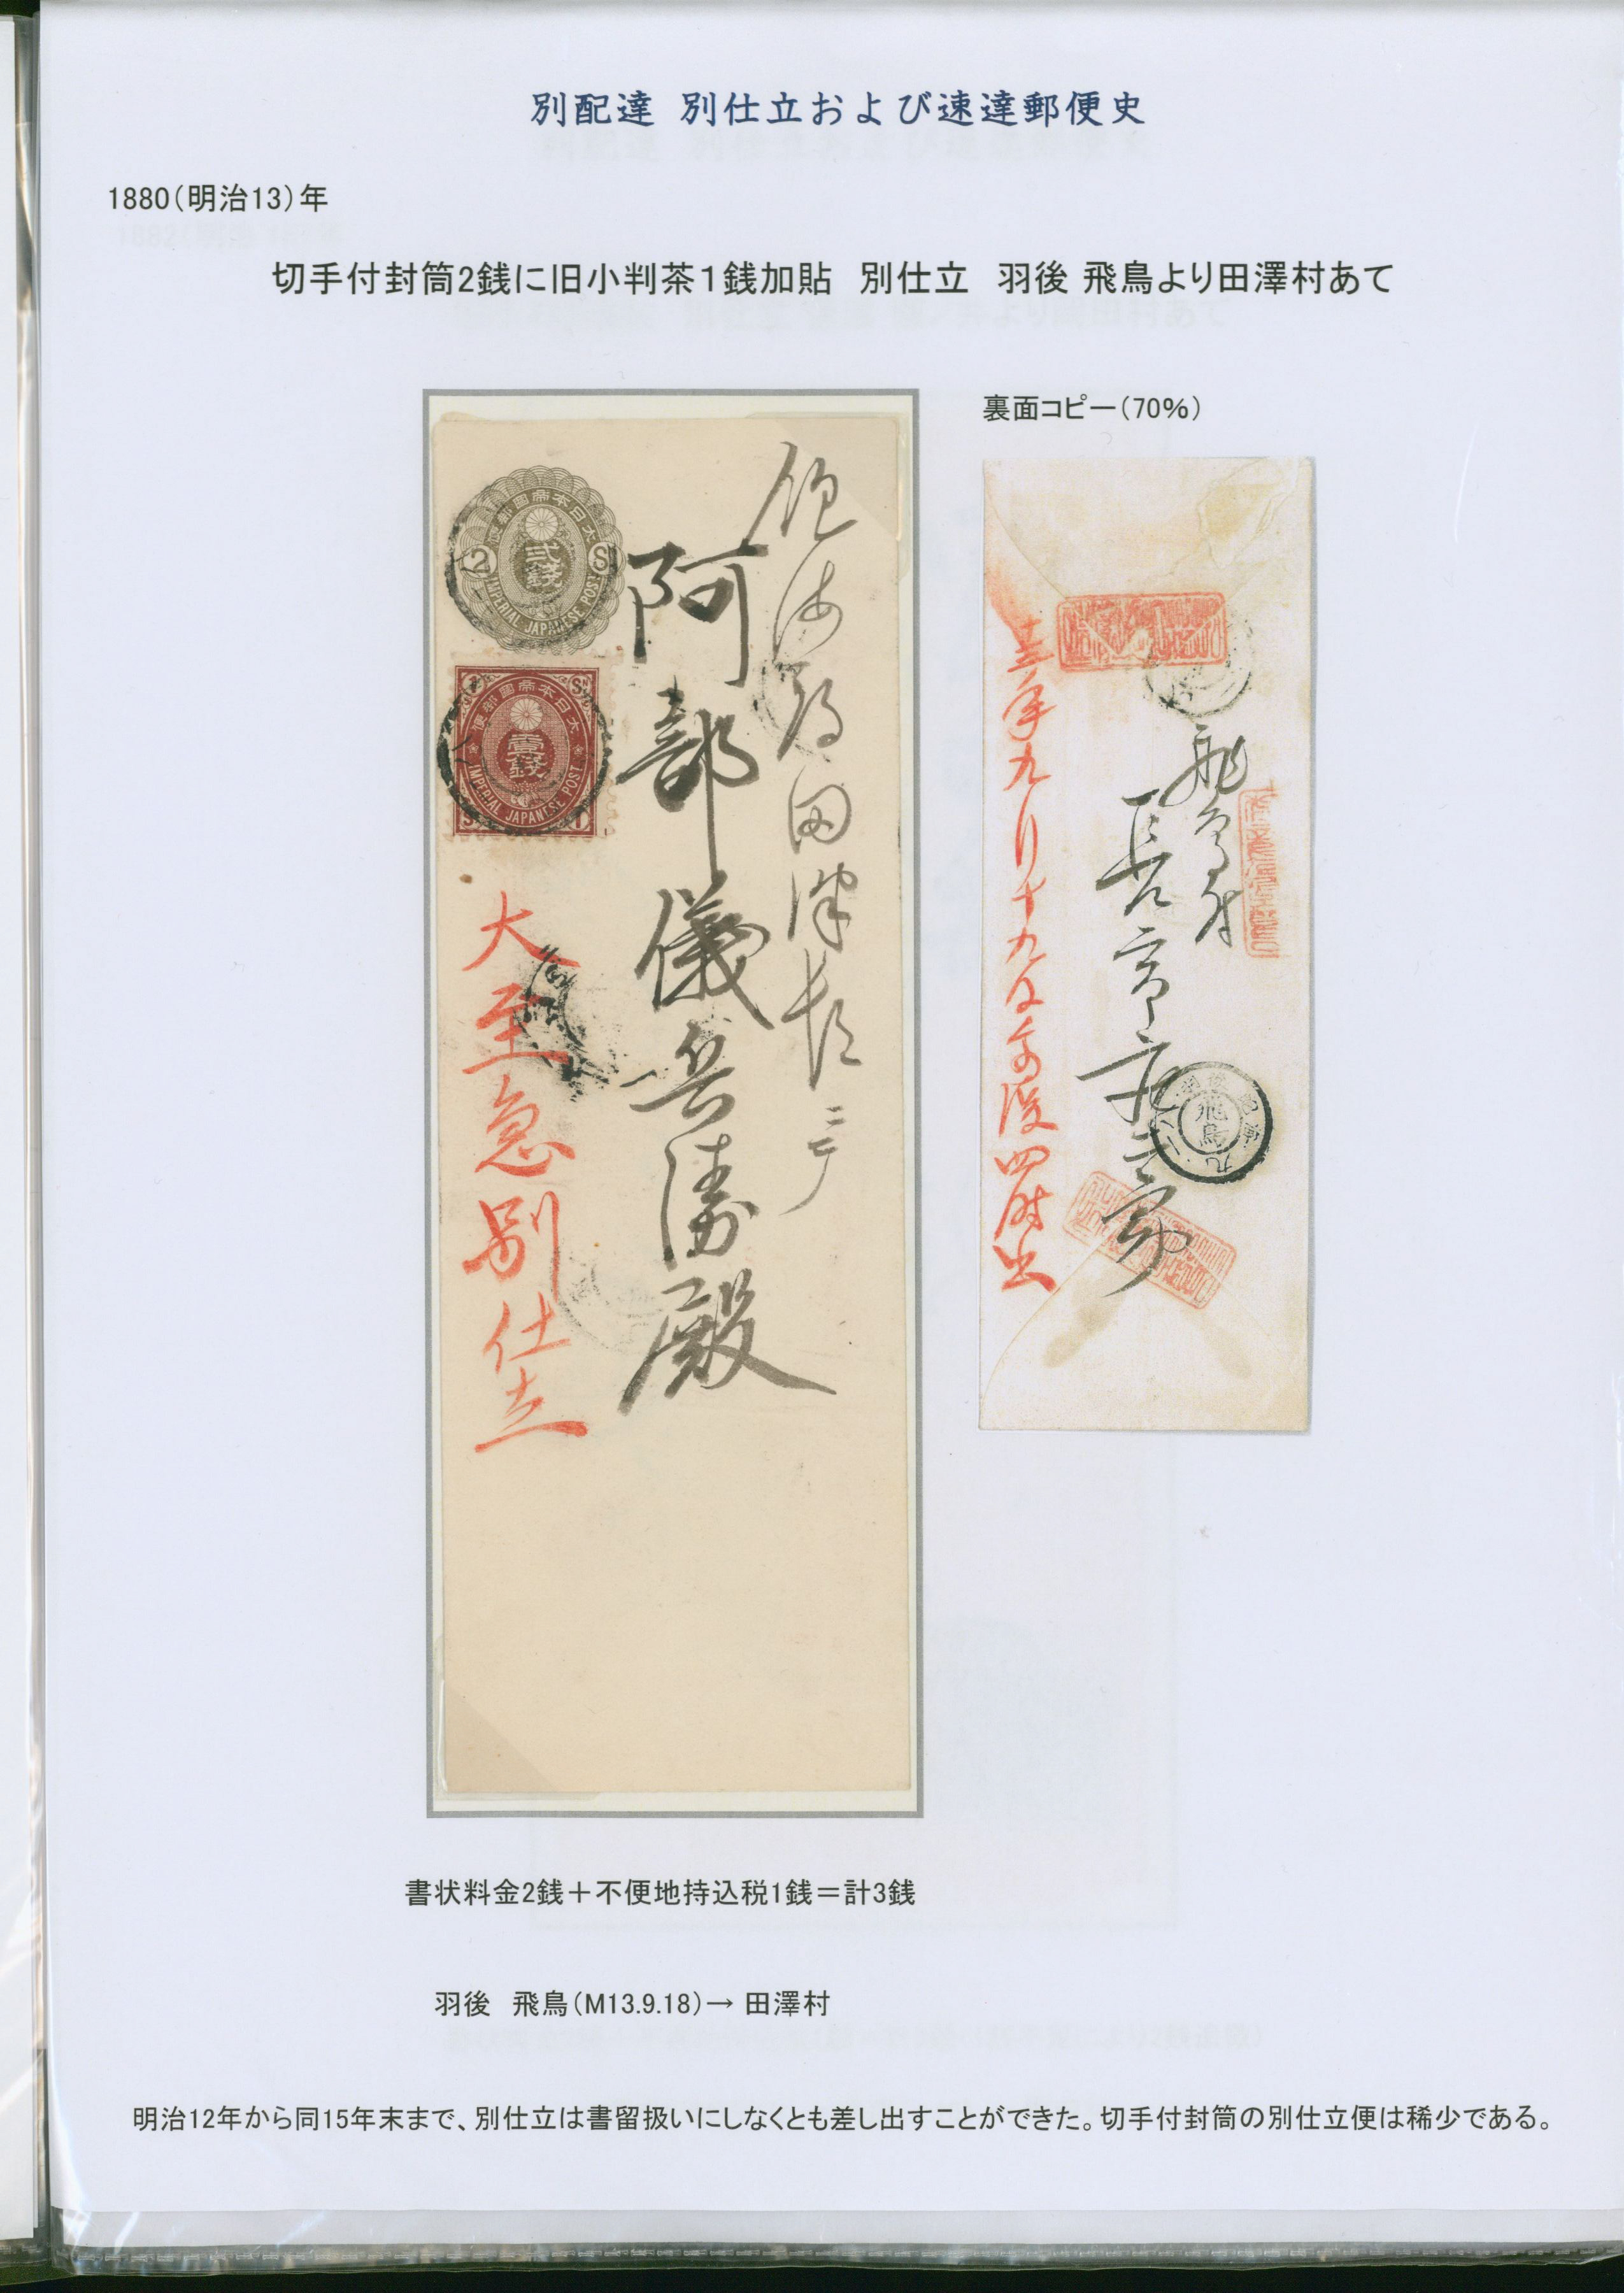 別配達 別仕立および速達郵便史
1880（明治13）年
切手付封筒2銭に旧小判茶１銭加貼　別仕立　羽後 飛鳥より田澤村あて
裏面コピー（70％）
大日本帝國郵便
貳錢
2 S
IMPERIAL JAPANESE POST
大日本帝國郵便
壹錢
IMPERIAL JAPANESE POST
阿部儀兵衛殿
大至急別仕立
十三年九月十九日午後四時出
飛鳥
書状料金2銭＋不便地持込税1銭＝計3銭
羽後　飛鳥（M13.9.18）→ 田澤村
明治12年から同15年末まで、別仕立は書留扱いにしなくとも差し出すことができた。切手付封筒の別仕立便は稀少である。